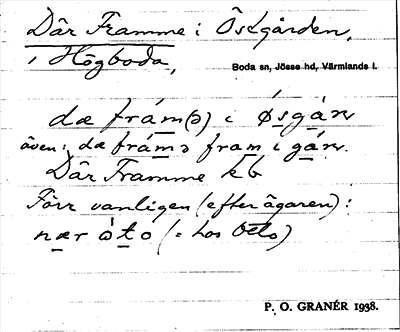 Där Framme i Östgården,
i Högboda,
Boda sn, Jösse hd, Värmlands l.
dæ frám(ə) i øsgáɳ
även: dæ frámə fram i gáɳ.
Där Framme kb
Förr vanligen (efter ägaren):
nær òtó (= hos Otto)
P. O. GRANÉR 1938.